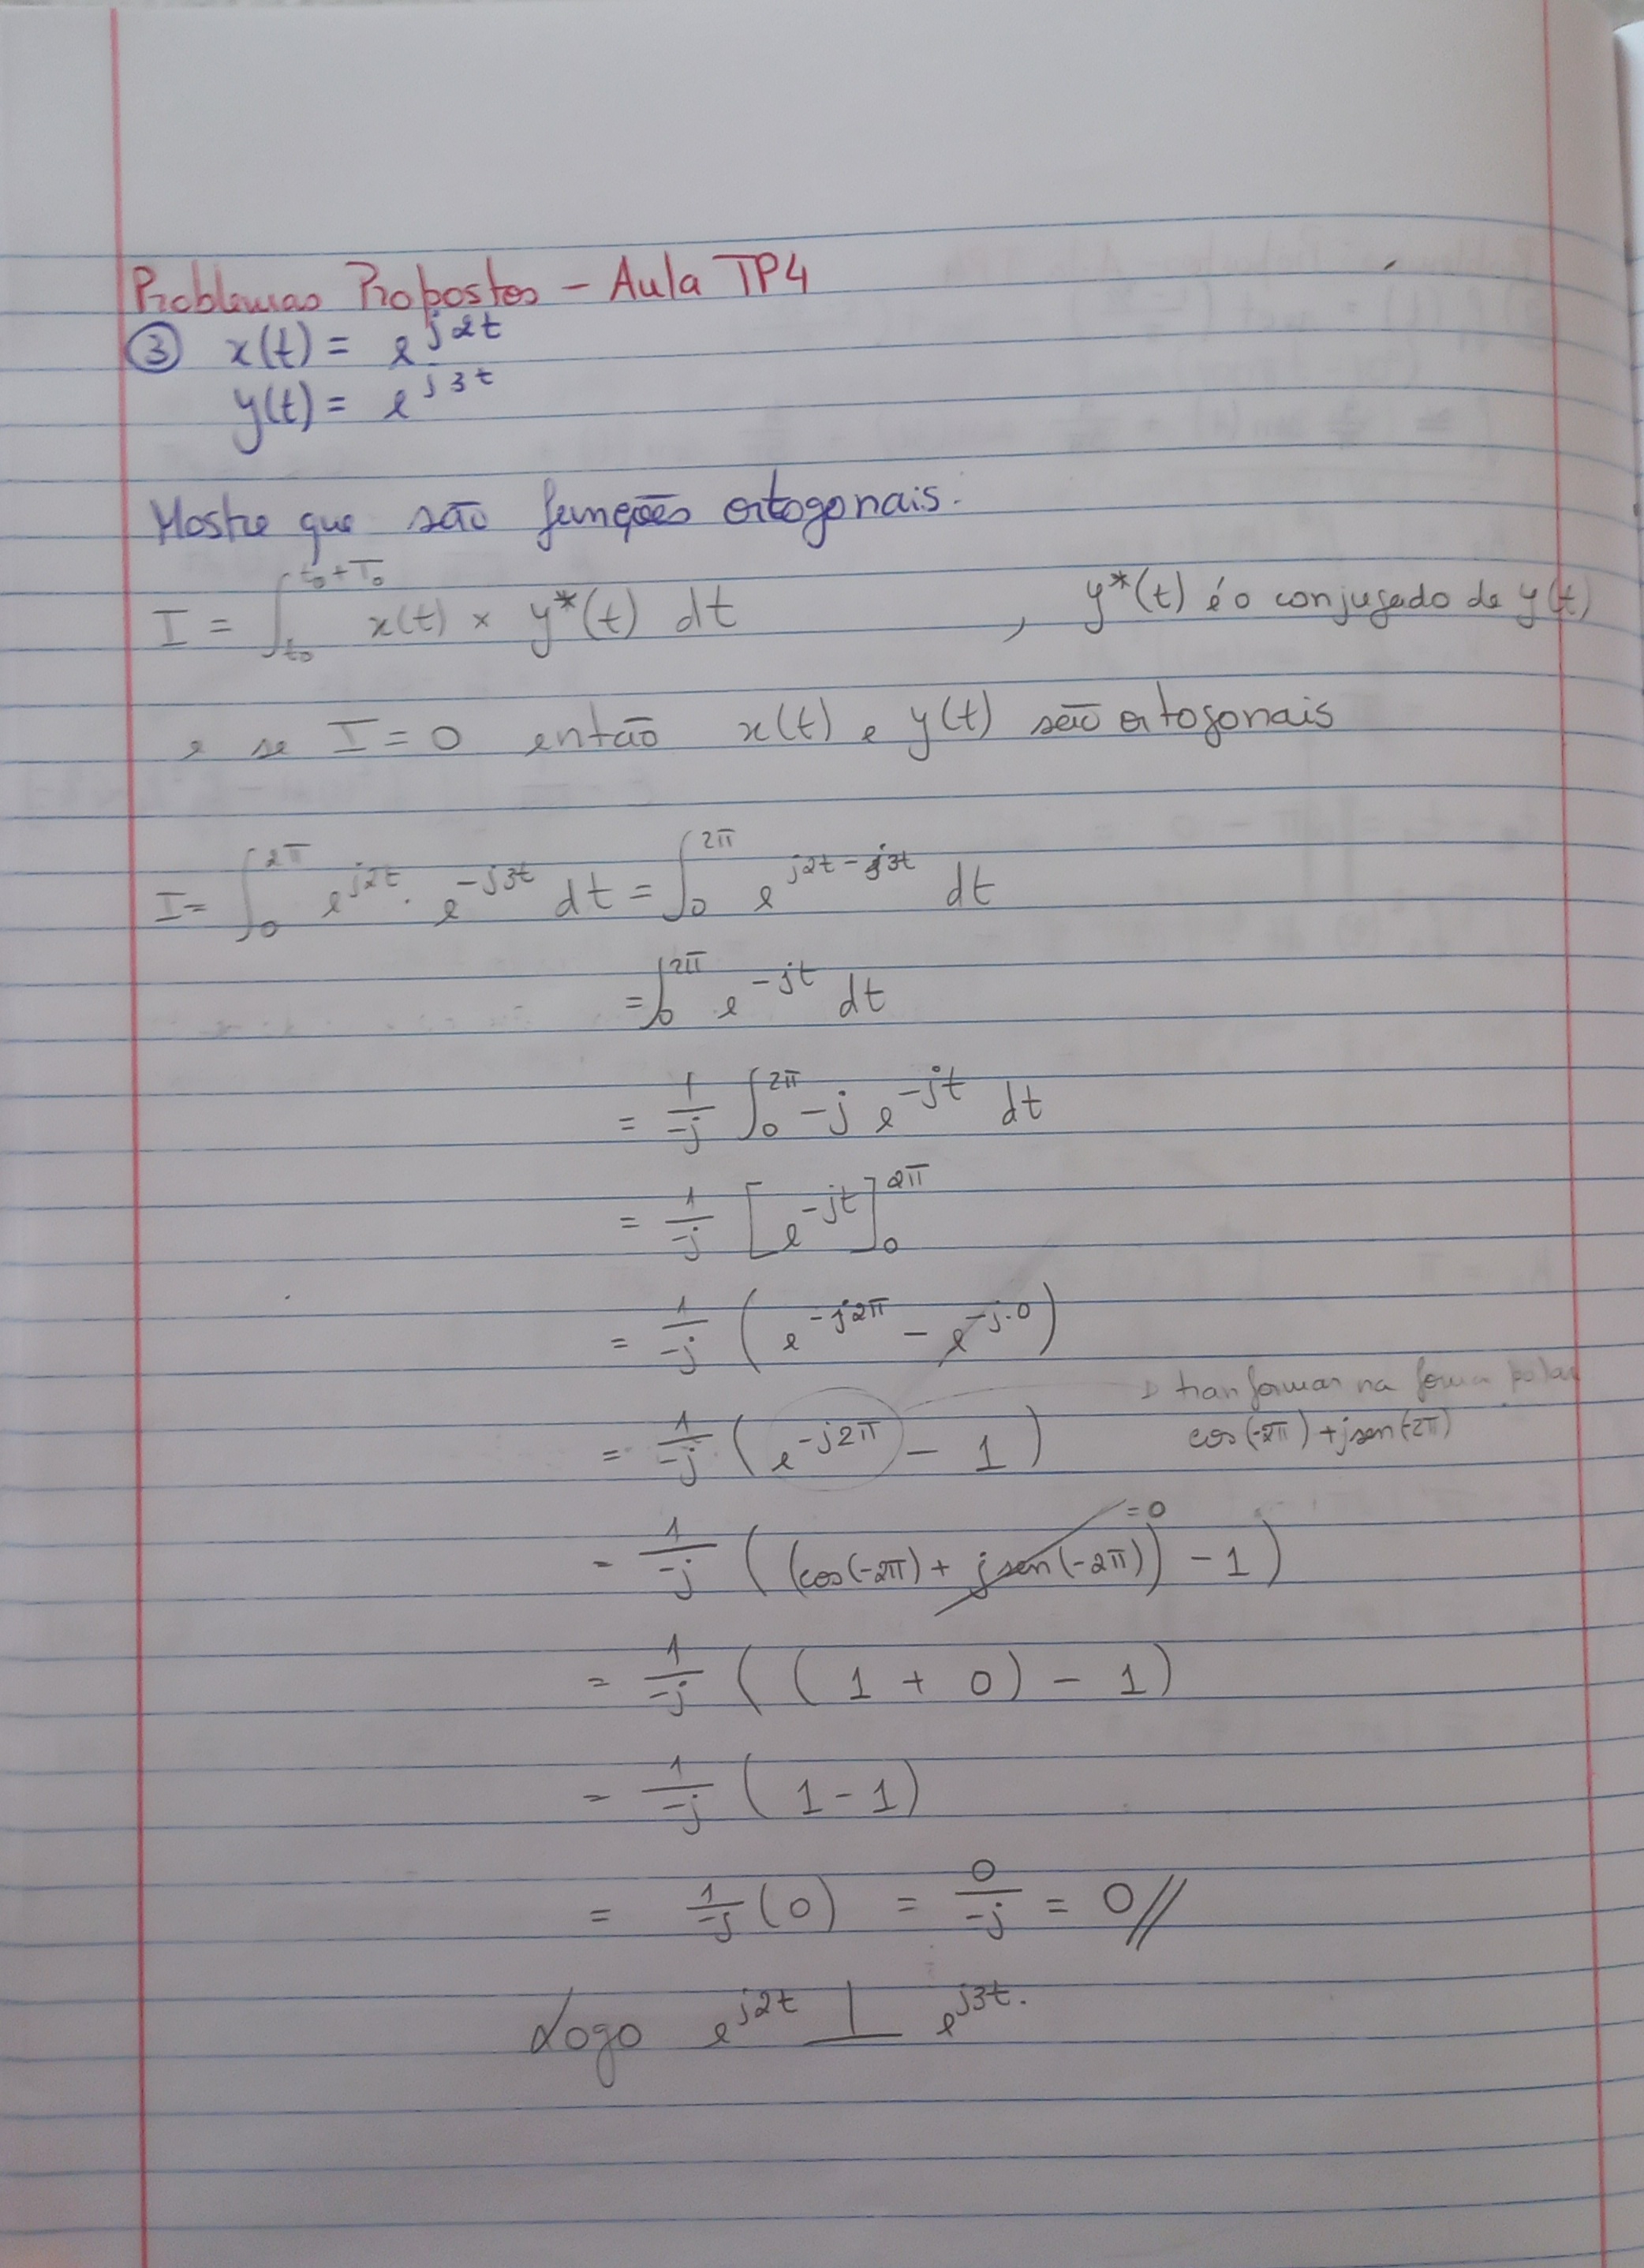 Problemas Propostos - Aula TP4
③ x(t) = e^{j2t}
y(t) = e^{j3t}
Mostre que são funções ortogonais.
I = ∫_{t₀}^{t₀+T₀} x(t) × y*(t) dt , y*(t) é o conjugado de y(t)
e se I = 0 então x(t) e y(t) são ortogonais
I = ∫_0^{2π} e^{j2t} · e^{-j3t} dt = ∫_0^{2π} e^{j2t - j3t} dt
= ∫_0^{2π} e^{-jt} dt
= 1/-j ∫_0^{2π} -j e^{-jt} dt
= 1/-j [e^{-jt}]_0^{2π}
= 1/-j (e^{-j2π} - e^{-j·0})
→ tranformar na forma polar
= 1/-j (e^{-j2π} - 1) cos(-2π) + jsen(-2π)
= 1/-j ((cos(-2π) + jsen(-2π)) - 1) =0
= 1/-j ((1 + 0) - 1)
= 1/-j (1 - 1)
= 1/-j (0) = 0/-j = 0//
Logo e^{j2t} ⊥ e^{j3t}.